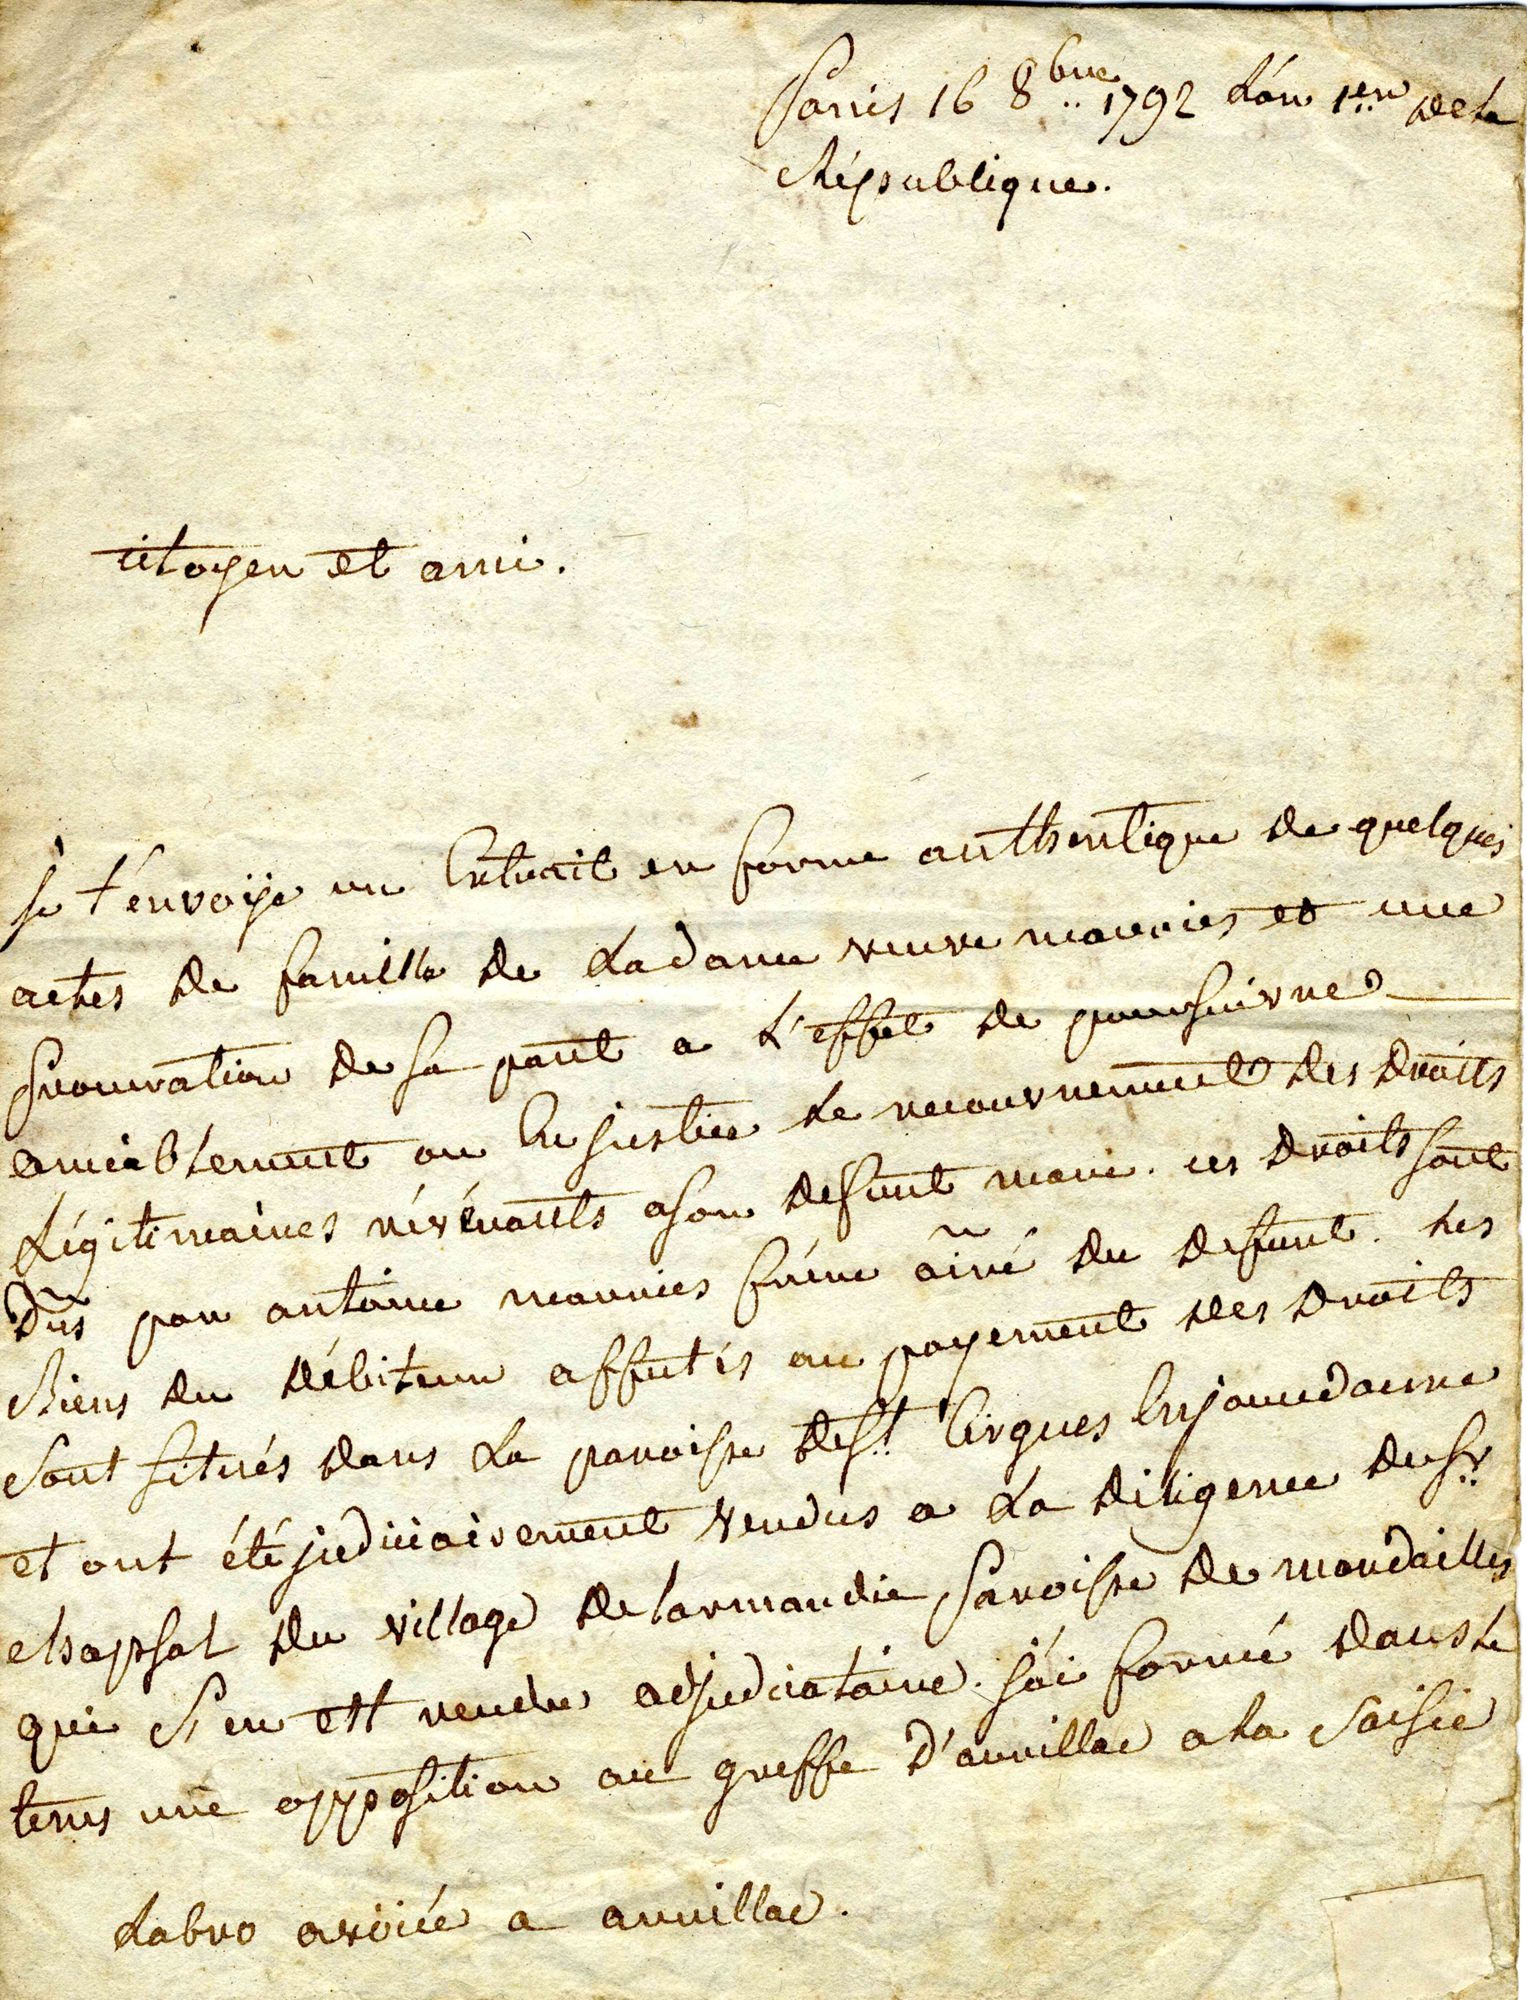 Paris 16 8bre 1792 L'an 1er de la
République.
citoyen et ami.
Je t'envoÿe un Extrait en forme authentique de quelques
actes de famille de La dame veuve mauries et une
procuration de sa part a L'effet de poursuivre
amiablement ou En justice Le recouvrement des droits
Légitimaires révénants a son defunt mari. ces droits sont
dus par antoine mauries frére ainé du defunt. Les
Biens du débiteur affectés au payement des droits
sont situés dans La paroisse de St. Cirgues En jourdanne
et ont été judiciairement vendus a La diligence du Sr.
chapsal du village de Larmandie paroisse de mandailles
qui s'en est rendu adjudicataire. j'ai formé dans Le
tems une opposition au greffe d'aurillac a La saisie
Labro avoüé a aurillac.